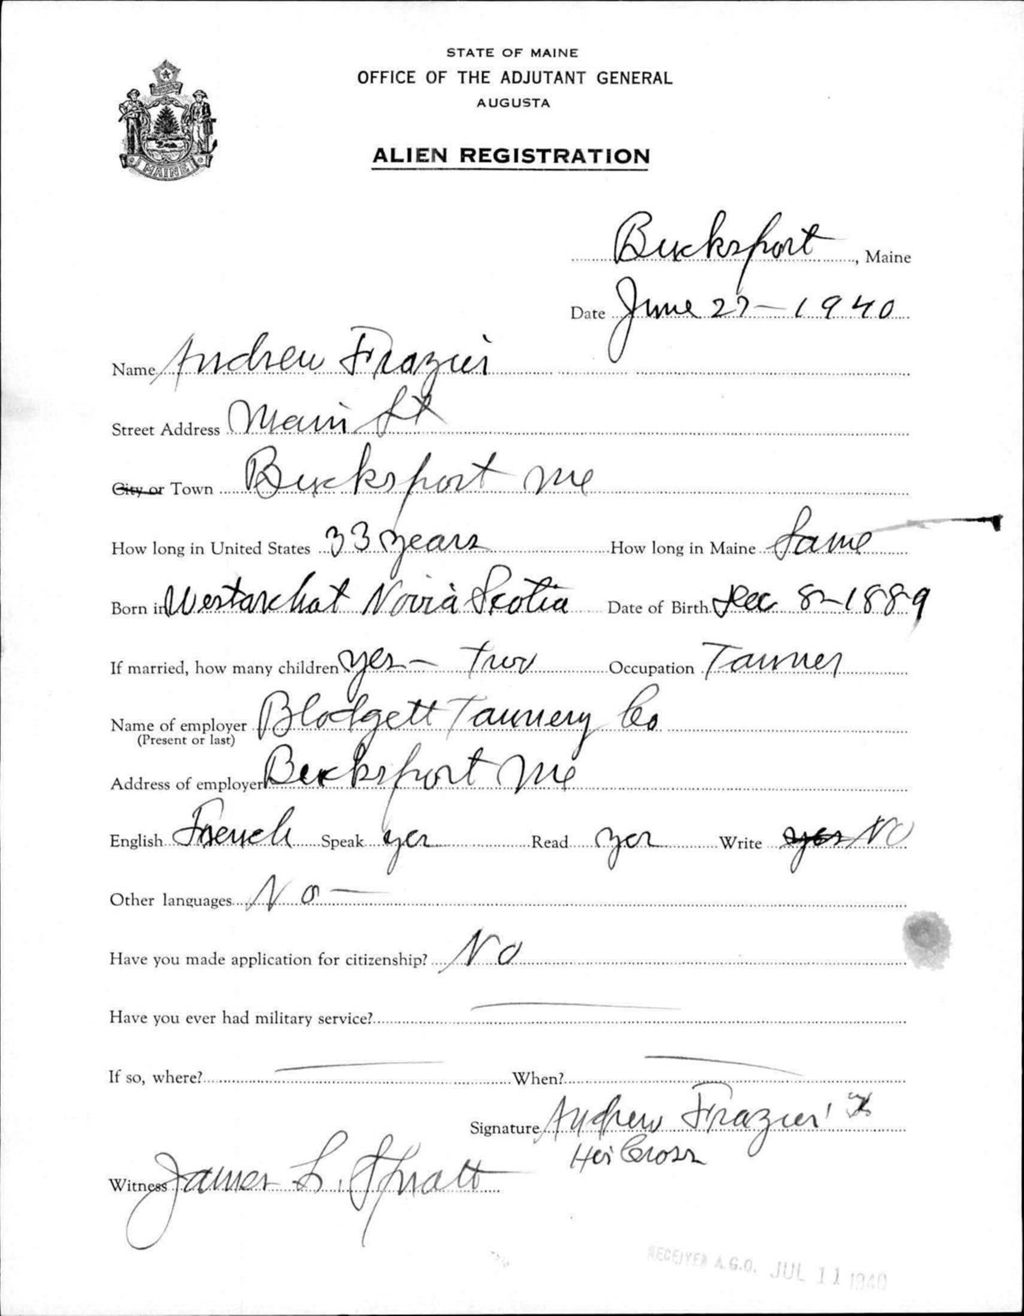 STATE OF MAINE
OFFICE OF THE ADJUTANT GENERAL
AUGUSTA
ALIEN REGISTRATION
MAINE
Bucksport, Maine
Date June 27-1940
Name Andrew Frazier
Street Address Main St
City or Town Bucksport Me
How long in United States 33 years How long in Maine Same
Born in Westarchat Novia Scotia Date of Birth Dec 8-1889
If married, how many children yes- two Occupation Tanner
Name of employer Blodgett Tannery Co
(Present or last)
Address of employer Bucksport Me
English French Speak yes Read yes Write yes NO
Other languages No-
Have you made application for citizenship? NO
Have you ever had military service?
If so, where? When?
Signature Andrew Frazier X
His Cross
Witness James L. Spratt
RECEIVED A.G.O. JUL 11 1940